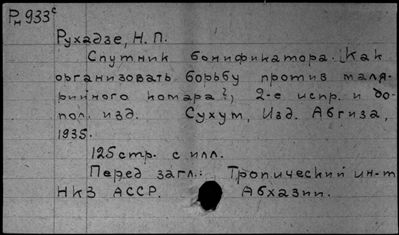 Рн 933с
Рухадзе, Н. П.
Спутник бонификатора. [Как
организовать борьбу против маля-
рийного комара?], 2-е испр. и до-
пол. изд. Сухум, Изд. Абгиза,
1935.
125 стр. с илл.
Перед загл.: Тропический ин-т
НКЗ АССР. Абхазии.